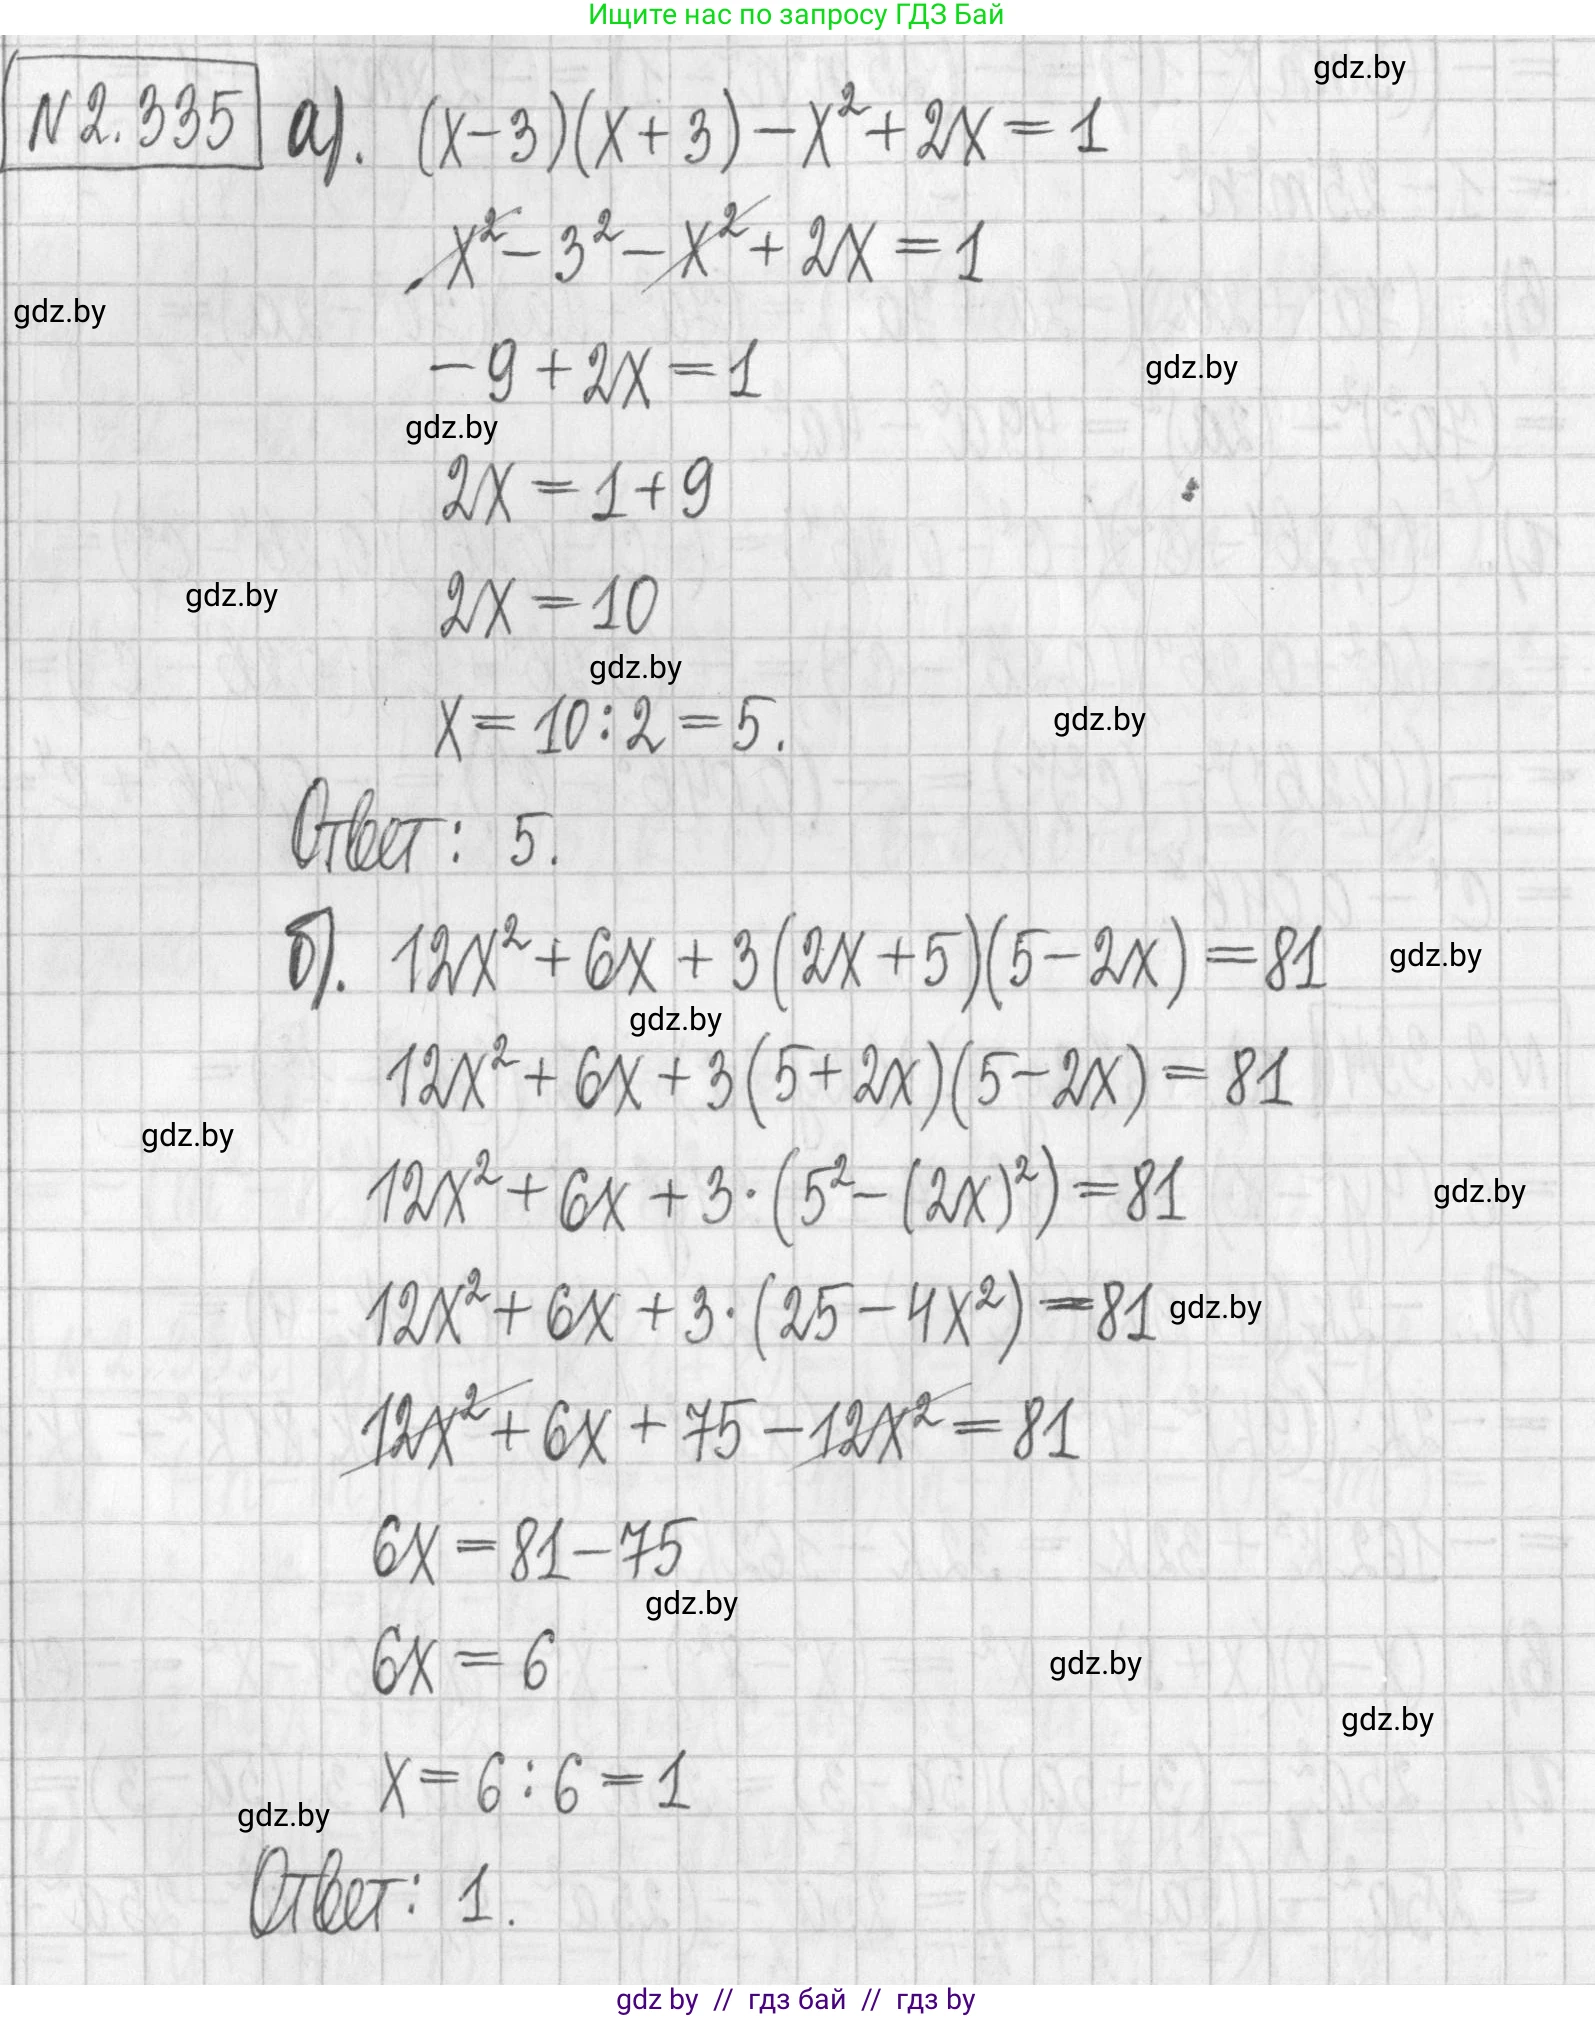 Ищите нас по запросу ГДЗ Бай
gdz.by
N 2.335 а). (x-3)(x+3)-x²+2x=1
x²-3²-x²+2x=1
gdz.by
-9+2x=1
gdz.by
gdz.by
2x=1+9
2x=10
gdz.by
gdz.by
x=10:2=5.
gdz.by
Ответ: 5.
б). 12x²+6x+3(2x+5)(5-2x)=81
gdz.by
gdz.by
12x²+6x+3(5+2x)(5-2x)=81
gdz.by
12x²+6x+3·(5²-(2x)²)=81
gdz.by
12x²+6x+3·(25-4x²)=81
gdz.by
12x²+6x+75-12x²=81
6x=81-75
gdz.by
6x=6
gdz.by
gdz.by
x=6:6=1
gdz.by
Ответ: 1.
gdz by // гдз бай // гдз by